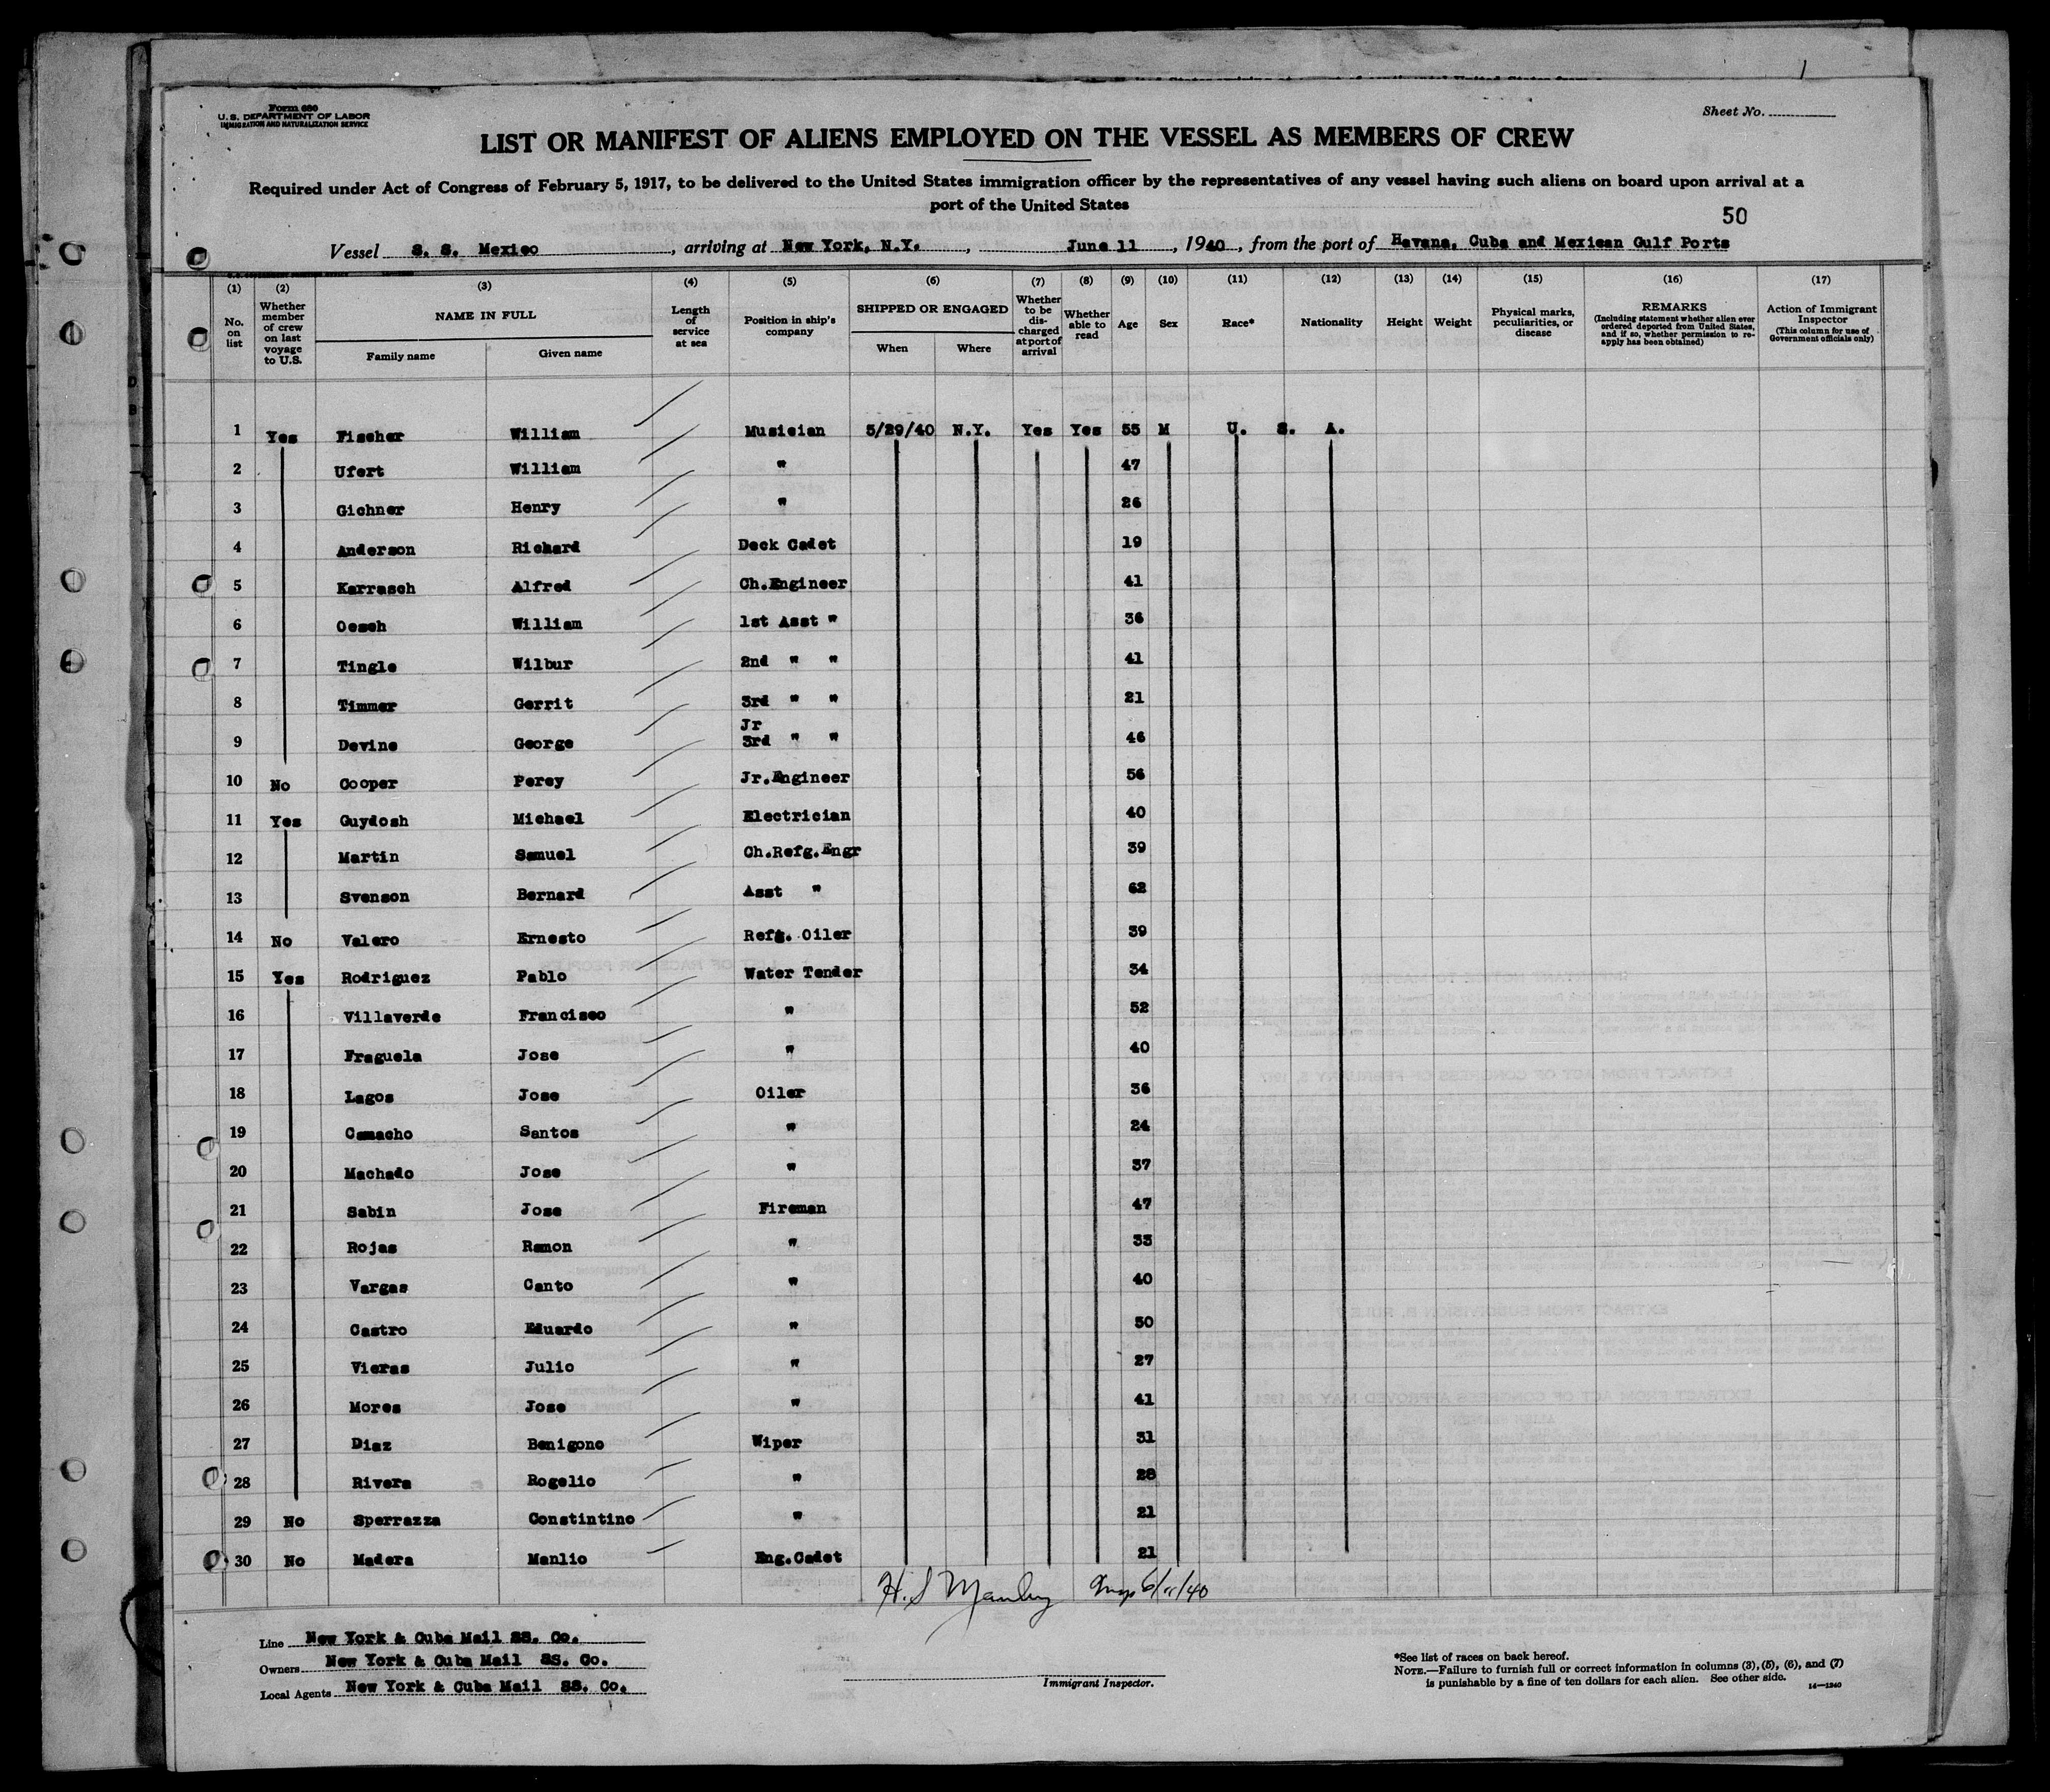 Form 680
U. S. DEPARTMENT OF LABOR
IMMIGRATION AND NATURALIZATION SERVICE
Sheet No.
LIST OR MANIFEST OF ALIENS EMPLOYED ON THE VESSEL AS MEMBERS OF CREW
Required under Act of Congress of February 5, 1917, to be delivered to the United States immigration officer by the representatives of any vessel having such aliens on board upon arrival at a
port of the United States
50
Vessel S. S. Mexico, arriving at New York, N.Y., June 11, 1940, from the port of Havana, Cuba and Mexican Gulf Ports
(1) No. on list
(2) Whether member of crew on last voyage to U.S.
(3) NAME IN FULL Family name Given name
(4) Length of service at sea
(5) Position in ship's company
(6) SHIPPED OR ENGAGED When Where
(7) Whether to be discharged at port of arrival
(8) Whether able to read
(9) Age
(10) Sex
(11) Race*
(12) Nationality
(13) Height
(14) Weight
(15) Physical marks, peculiarities, or disease
(16) REMARKS (Including statement whether alien ever ordered deported from United States, and if so, whether permission to reapply has been obtained)
(17) Action of Immigrant Inspector (This column for use of Government officials only)
1 Yes Fischer William Musician 5/29/40 N.Y. Yes Yes 55 M U. S. A.
2 Ufert William " 47
3 Gichner Henry " 26
4 Anderson Richard Deck Cadet 19
5 Karrasch Alfred Ch.Engineer 41
6 Oesch William 1st Asst " 36
7 Tingle Wilbur 2nd " " 41
8 Timmer Gerrit 3rd " " 21
9 Devine George Jr 3rd " " 46
10 No Cooper Percy Jr.Engineer 56
11 Yes Guydosh Michael Electrician 40
12 Martin Samuel Ch.Refg.Engr 39
13 Svenson Bernard Asst " 62
14 No Valero Ernesto Refg. Oiler 39
15 Yes Rodriguez Pablo Water Tender 34
16 Villaverde Francisco " 52
17 Fraguela Jose " 40
18 Lagos Jose Oiler 36
19 Camacho Santos " 24
20 Machado Jose " 37
21 Sabin Jose Fireman 47
22 Rojas Ramon " 33
23 Vargas Canto " 40
24 Castro Eduardo " 50
25 Vieras Julio " 27
26 Mores Jose " 41
27 Diaz Benigono Wiper 31
28 Rivera Rogelio " 28
29 No Sperrazza Constintino " 21
30 No Madera Manlio Eng.Cadet 21
6/11/40
Line New York & Cuba Mail SS. Co.
Owners New York & Cuba Mail SS. Co.
Local Agents New York & Cuba Mail SS. Co.
Immigrant Inspector.
*See list of races on back hereof.
NOTE.—Failure to furnish full or correct information in columns (3), (5), (6), and (7)
is punishable by a fine of ten dollars for each alien. See other side.
14—1240